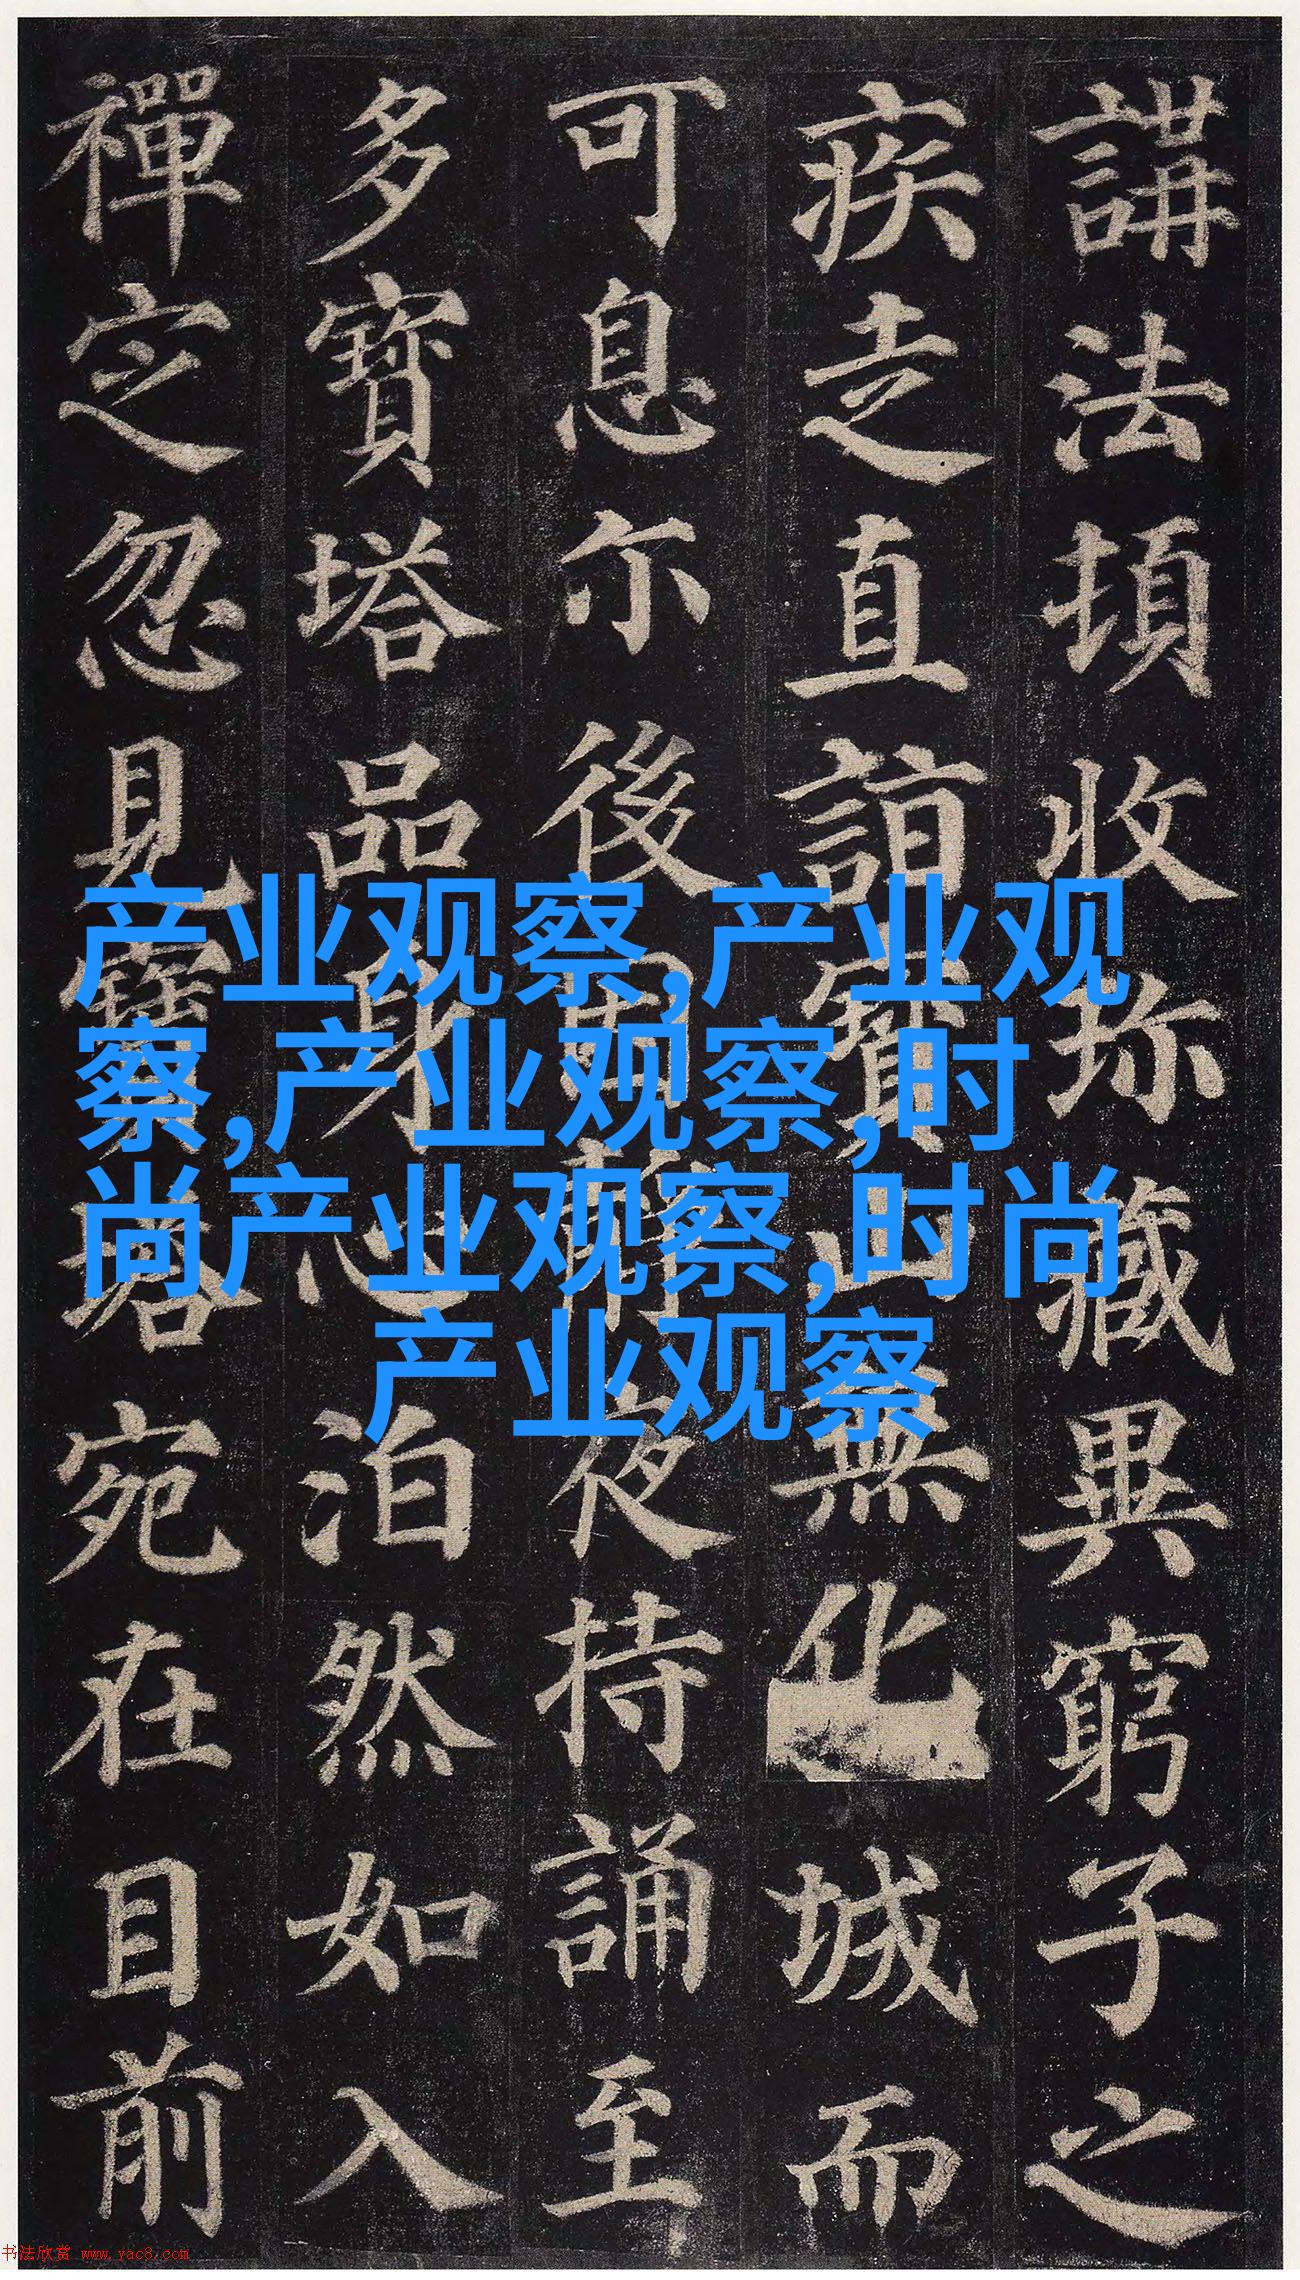 講法頓收珎藏異窮子之
疾走直詣寶山無化城而
可息尒後因靜夜持誦至
多寶塔品身心泊然如入
禪定忽見寶塔宛在目前
产业观察,产业观
察,产业观察,时
尚产业观察,时尚
产业观察
书法欣赏 www.yac8.com